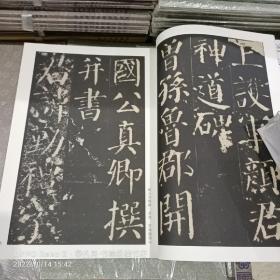 上護軍顏君
神道碑
曾孫魯郡開
國公真卿撰
并書
君諱勤禮字
2022/10/14 15:42